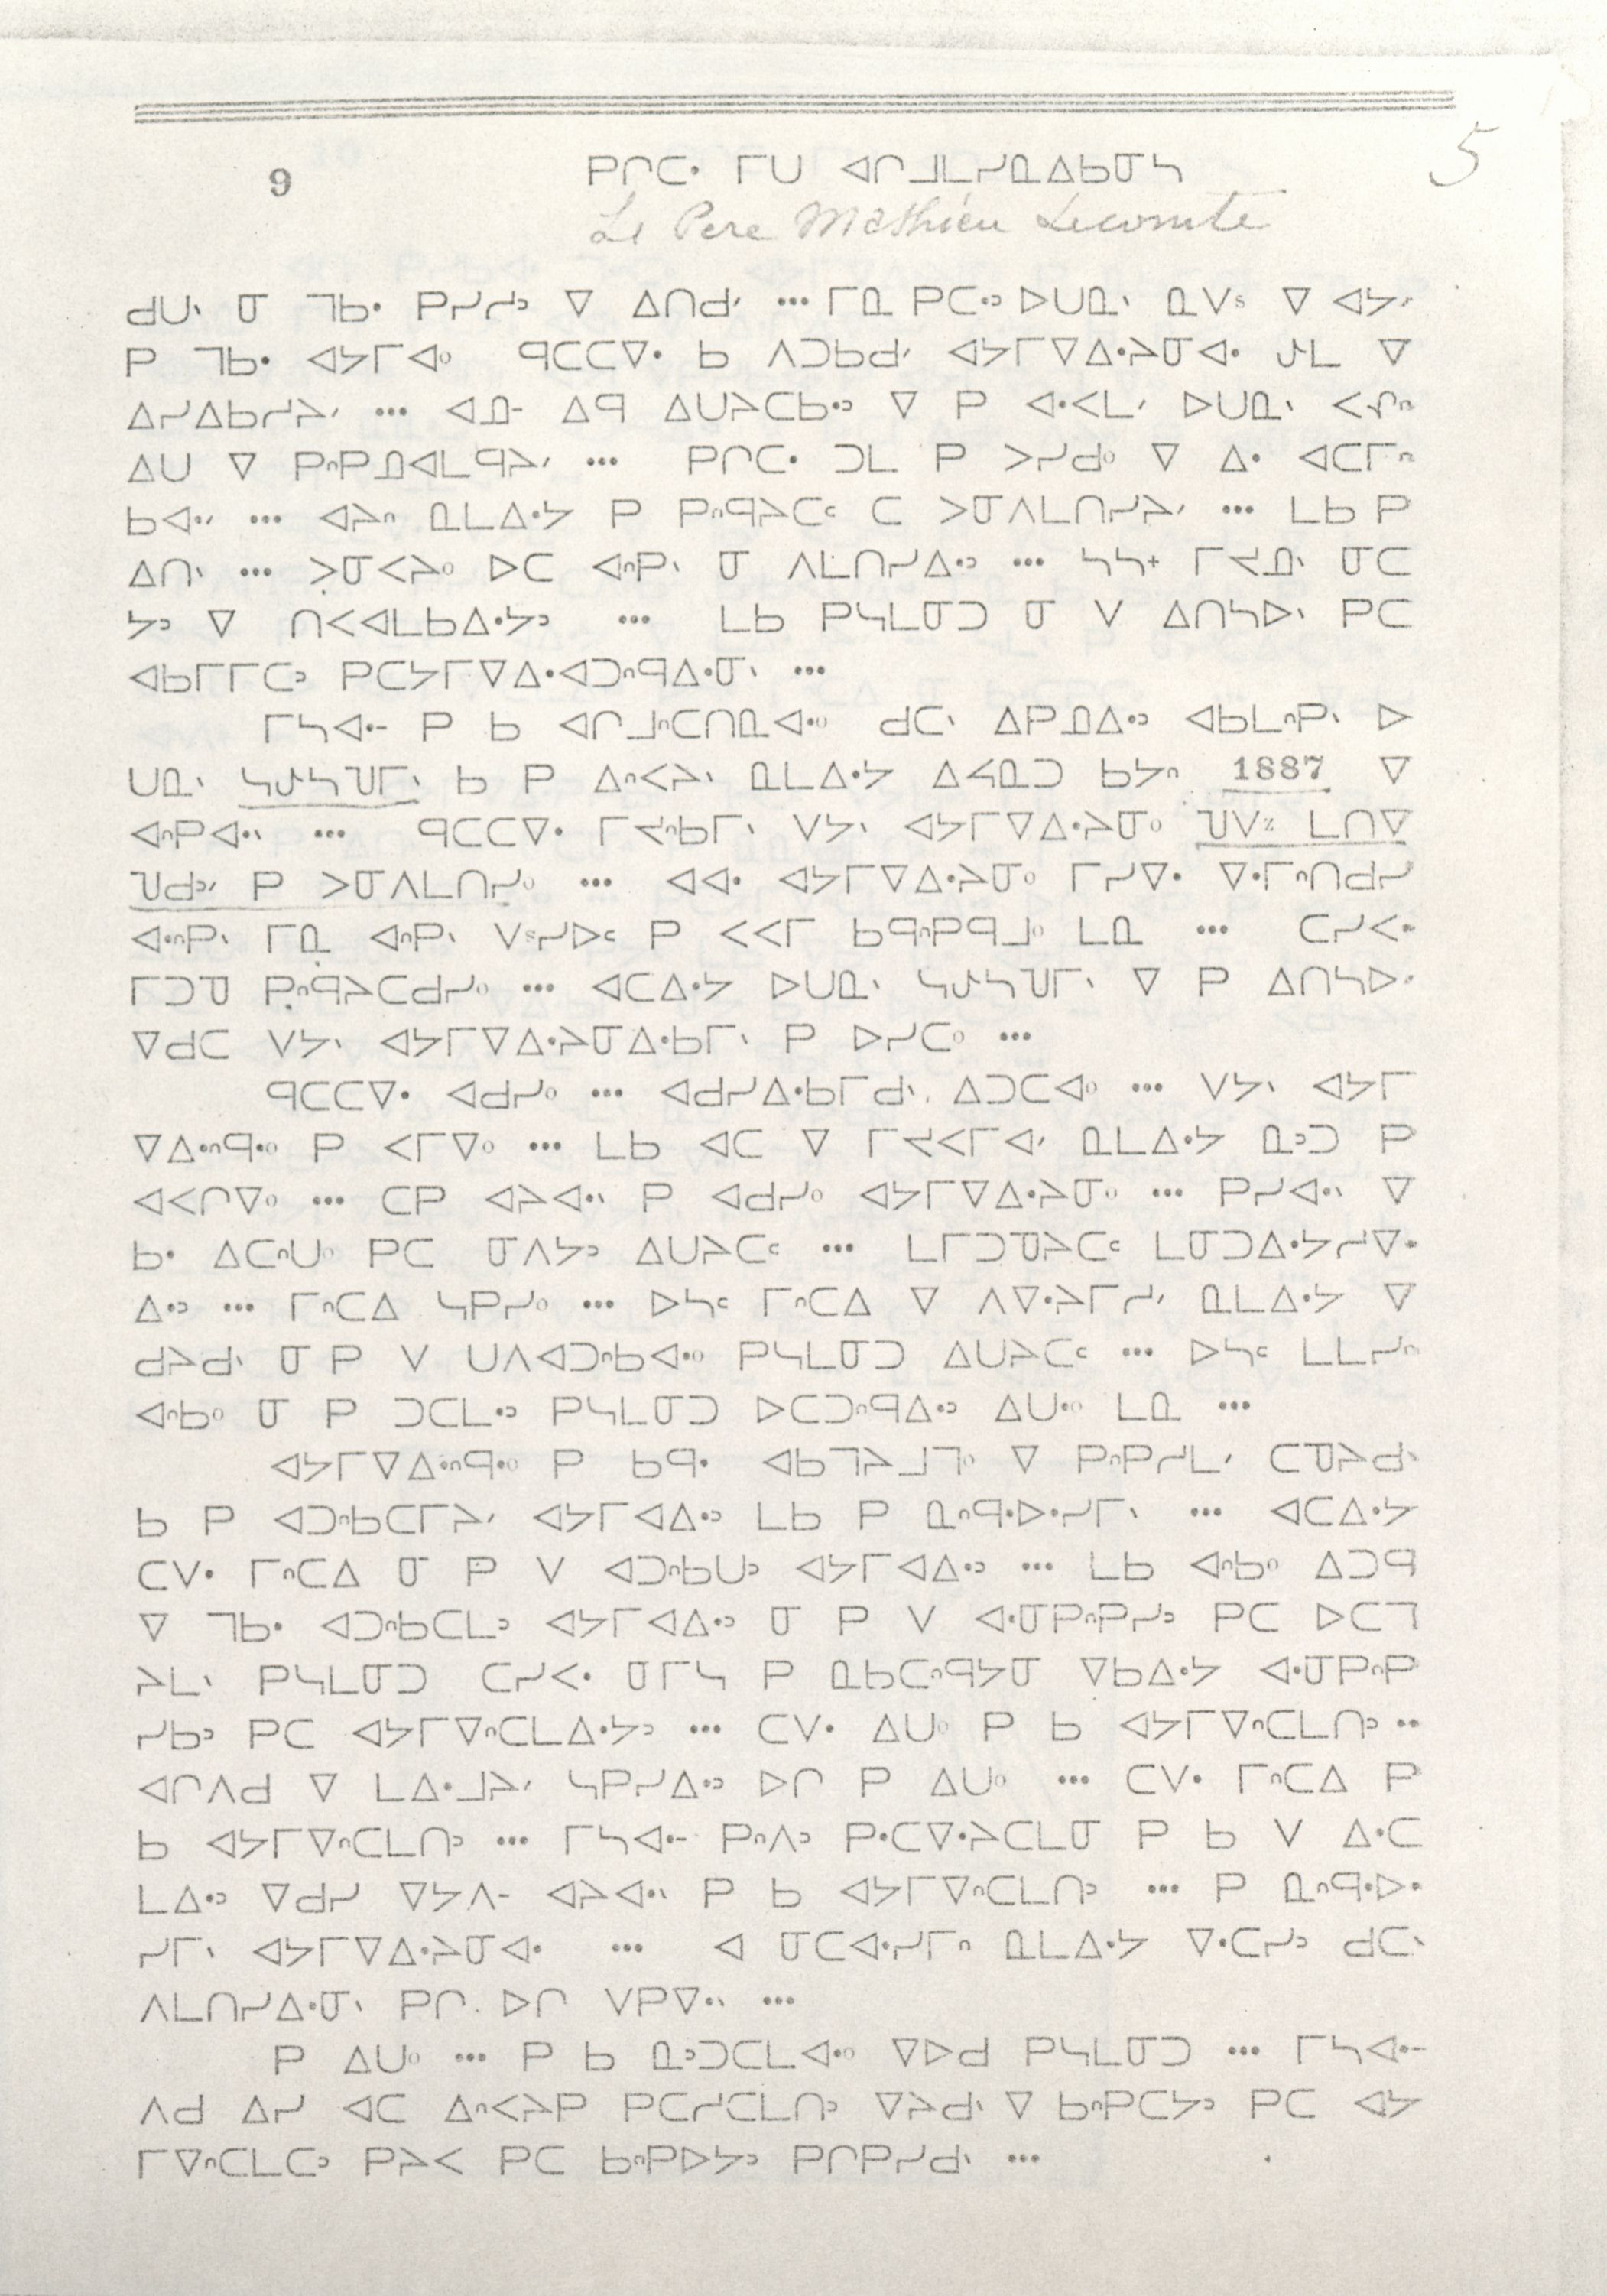 5
9 ᑭᒋᑕᐧ ᒥᑌ ᐊᒋᒧᒪᓯᓇᐃᑲᓂᓴ
Le Pere Mathieu Lecomte
ᑯᑌᐠ ᓂ ᒣᑲᐧ ᑭᓯᓯᐣ ᐁ ᐃᑎᑯᐟ ... ᒥᓇ ᑭᑕᐧᐣ ᐅᑌᓇᐠ ᓇᐯs ᐁ ᐊᔭᐟ
ᑭ ᒣᑲᐧ ᐊᔭᒥᐊᐤ ᑫᑕᑕᐁᐧ ᑲ ᐱᑐᑲᑯᐟ ᐊᔭᒥᐁᐃᐧᔨᓂᐊᐧ ᔑᒪ ᐁ
ᐃᓯᐃᑲᓯᔨᐟ ... ᐊᓄᐨ ᐃᑫ ᐃᑌᔨᑕᑲᐧᐣ ᐁ ᑭ ᐊᐧᐸᒪᐟ ᐅᑌᓇᐠ
ᐃᑌ ᐁ ᑭᐢᑭᓄᐊᒪᑫᔨᐟ ... ᑭᒋᑕᐧ ᑐᒪ ᑭ ᐳᓯᑯᐤ ᐁ ᐃᐧ ᐊᑕᒥᐢ
ᑲᐊᐧᐟ ... ᐊᔨᐢ ᓇᒪᐃᐧᔭ ᑭ ᑭᐢᑫᔨᑕᒼ ᑕ ᐳᓂᐱᒪᑎᓯᔨᐟ ... ᒪᑲ ᑭ
ᐃᑎᐠ ... ᐳᓂᐸᔨᐤ ᐅᑕ ᐊᐢᑭᐠ ᓂ ᐱᒪᑎᓯᐃᐧᐣ ... ᓴᓴᐩ ᒥᔪᓄᐠ ᓂᑕ
ᔭᐣ ᐁ ᑎᐸᐊᒪᑲᐃᐧᔭᐣ ... ᒪᑲ ᑭᓴᒪᓂᑐ ᓂ ᐯ ᐃᑎᓴᐅᐠ ᑭᑕ
ᐊᑲᒥᒥᑕᐣ ᑭᑕᔭᒥᐁᐃᐧᐊᑐᐢᑫᐃᐧᓂᐠ ...
ᒥᓴᐊᐧᐨ ᑭ ᑲ ᐊᒋᒧᐢᑕᑎᓇᐊᐧᐤ ᑯᑕᐠ ᐃᑭᓄᐃᐧᐣ ᐊᑲᒪᐢᑭᐠ ᐅ
ᑌᓇᐠ ᓴᔑᓴᓗᒥᐠ ᑲ ᑭ ᐃᐢᐸᔨᐠ ᓇᒪᐃᐧᔭ ᐃᔪᓇᑐ ᑲᔭᐢ 1887 ᐁ
ᐊᐢᑭᐊᐧᐠ ... ᑫᑕᑕᐁᐧ ᒥᔪᐢᑲᒥᐠ ᐯᔭᐠ ᐊᔭᒥᐁᐃᐧᔨᓂᐤ ᓗᐯz ᒪᑎᐁ
ᓗᑯᐣᐟ ᑭ ᐳᓂᐱᒪᑎᓯᐤ ... ᐊᐊᐧ ᐊᔭᒥᐁᐃᐧᔨᓂᐤ ᒥᓯᐁᐧ ᐁᐧᒥᐢᑎᑯᓯ
ᐊᐧᐢᑭᐠ ᒥᓇ ᐊᐢᑭᐠ ᐯsᓯᐅᒼ ᑭ ᐸᐸᒥ ᑲᑫᐢᑭᑫᒧᐤ ᒪᓇ ... ᑕᓯᐸᐧ
ᒥᑐᓀ ᑭᐢᑫᔨᑕᑯᓯᐤ ... ᐊᑕᐃᐧᔭ ᐅᑌᓇᐠ ᓴᔑᓴᓗᒥᐠ ᐁ ᑭ ᐃᑎᓴᐅᐟ
ᐁᑯᑕ ᐯᔭᐠ ᐊᔭᒥᐁᐃᐧᔨᓂᐃᐧᑲᒥᐠ ᑭ ᐅᓯᑕᐤ ...
ᑫᑕᑕᐁᐧ ᐊᑯᓯᐤ ... ᐊᑯᓯᐃᐧᑲᒥᑯᐠ ᐃᑐᑕᐊᐤ ... ᐯᔭᐠ ᐊᔭᒥ
ᐁᐃᐧᐢᑫᐧᐤ ᑭ ᐸᒥᐁᐤ ... ᒪᑲ ᐊᑕ ᐁ ᒥᔪᐸᒥᐊᐟ ᓇᒪᐃᐧᔭ ᓇᐣᑐ ᑭ
ᐊᐸᒋᐁᐤ ... ᑕᑭ ᐊᔨᐊᐧᐠ ᑭ ᐊᑯᓯᐤ ᐊᔭᒥᐁᐃᐧᔨᓂᐤ ... ᑭᓯᐊᐧᐠ ᐁ
ᑲᐧ ᐃᑕᐢᑌᐤ ᑭᑕ ᓂᐱᔭᐣ ᐃᑌᔨᑕᒼ ... ᒪᒥᑐᓀᔨᑕᒼ ᒪᓂᑐᐃᐧᔭᓯᐁᐧ
ᐃᐧᐣ ... ᒥᐢᑕᐃ ᓴᑭᓯᐤ ... ᐅᓴᒼ ᒥᐢᑕᐃ ᐁ ᐱᐁᐧᔨᒥᓯᐟ ᓇᒪᐃᐧᔭ ᐁ
ᑯᔨᑯᐠ ᓂ ᑭ ᐯ ᑌᐱᐊᑐᐢᑲᐊᐧᐤ ᑭᓴᒪᓂᑐ ᐃᑌᔨᑕᒼ ... ᐅᓴᒼ ᒪᒪᓯᐢ
ᐊᐢᑲᐤ ᓂ ᑭ ᑐᑕᒪᐧᐣ ᑭᓴᒪᓂᑐ ᐅᑕᑐᐢᑫᐃᐧᐣ ᐃᑌᐧᐤ ᒪᓇ ...
ᐊᔭᒥᐁᐃᐧᐢᑫᐧᐤ ᑭ ᑲᑫᐧ ᐊᑲᒣᔨᒧᒣᐤ ᐁ ᑭᐢᑭᓯᒪᐟ ᑕᓀᔨᑯᐠ
ᑲ ᑭ ᐊᑐᐢᑲᑕᒥᔨᐟ ᐊᔭᒥᐊᐃᐧᐣ ᒪᑲ ᑭ ᓇᐢᑫᐧᐅᐧᓯᒥᐠ ... ᐊᑕᐃᐧᔭ
ᑕᐯᐧ ᒥᐢᑕᐃ ᓂ ᑭ ᐯ ᐊᑐᐢᑲᑌᐣ ᐊᔭᒥᐊᐃᐧᐣ ... ᒪᑲ ᐊᐢᑲᐤ ᐃᑐᑫ
ᐁ ᒣᑲᐧ ᐊᑐᐢᑲᑕᒪᐣ ᐊᔭᒥᐊᐃᐧᐣ ᓂ ᑭ ᐯ ᐊᐧᓂᑭᐢᑭᓯᐣ ᑭᑕ ᐅᑕᒣ
ᔨᒪᐠ ᑭᓴᒪᓂᑐ ᑕᓯᐸᐧ ᓂᒥᓴ ᑭ ᓇᑲᑕᐢᑫᔭᓂ ᐁᑲᐃᐧᔭ ᐊᐧᓂᑭᐢᑭ
ᓯᑲᐣ ᑭᑕ ᐊᔭᒥᐁᐢᑕᒪᐃᐧᔭᐣ ... ᑕᐯᐧ ᐃᑌᐤ ᑭ ᑲ ᐊᔭᒥᐁᐢᑕᒪᑎᐣ ..
ᐊᒋᐱᑯ ᐁ ᒪᐃᐧᒧᔨᐟ ᓴᑭᓯᐃᐧᐣ ᐅᒋ ᑭ ᐃᑌᐤ ... ᑕᐯᐧ ᒥᐢᑕᐃ ᑭ
ᑲ ᐊᔭᒥᐁᐢᑕᒪᑎᐣ ... ᒥᓴᐊᐧᐨ ᑭᐢᐱᐣ ᑭᐧᑕᐁᐧᔨᑕᒪᓂ ᑭ ᑲ ᐯ ᐃᐧᑕ
ᒪᐃᐧᐣ ᐁᑯᓯ ᐁᔭᐱᐨ ᐊᔨᐊᐧᐠ ᑭ ᑲ ᐊᔭᒥᐁᐢᑕᒪᑎᐣ ... ᑭ ᓇᐢᑫᐧᐅᐧ
ᓯᒥᐠ ᐊᔭᒥᐁᐃᐧᔨᓂᐊᐧ ... ᐊ ᓂᑕᐊᐧᓯᒥᐢ ᓇᒪᐃᐧᔭ ᐁᐧᑕᓯᐣ ᑯᑕᐠ
ᐱᒪᑎᓯᐃᐧᓂᐠ ᑭᒋ ᐅᒋ ᐯᑭᐁᐧᐠ ...
ᑭ ᐃᑌᐤ ... ᑭ ᑲ ᓇᐣᑐᑕᒪᐊᐧᐤ ᐁᐅᑯ ᑭᓴᒪᓂᑐ ... ᒥᓴᐊᐧᐨ
ᐱᑯ ᐃᓯ ᐊᑕ ᐃᐢᐸᔨᑭ ᑭᑕᓯᑕᒪᑎᐣ ᐁᔨᑯᐠ ᐁ ᑲᐢᑭᑕᔭᐣ ᑭᑕ ᐊᔭ
ᒥᐁᐢᑕᒪᑕᐣ ᑭᔨᐸ ᑭᑕ ᑲᐢᑭᐅᔭᐣ ᑭᒋᑭᓯᑯᐠ ...